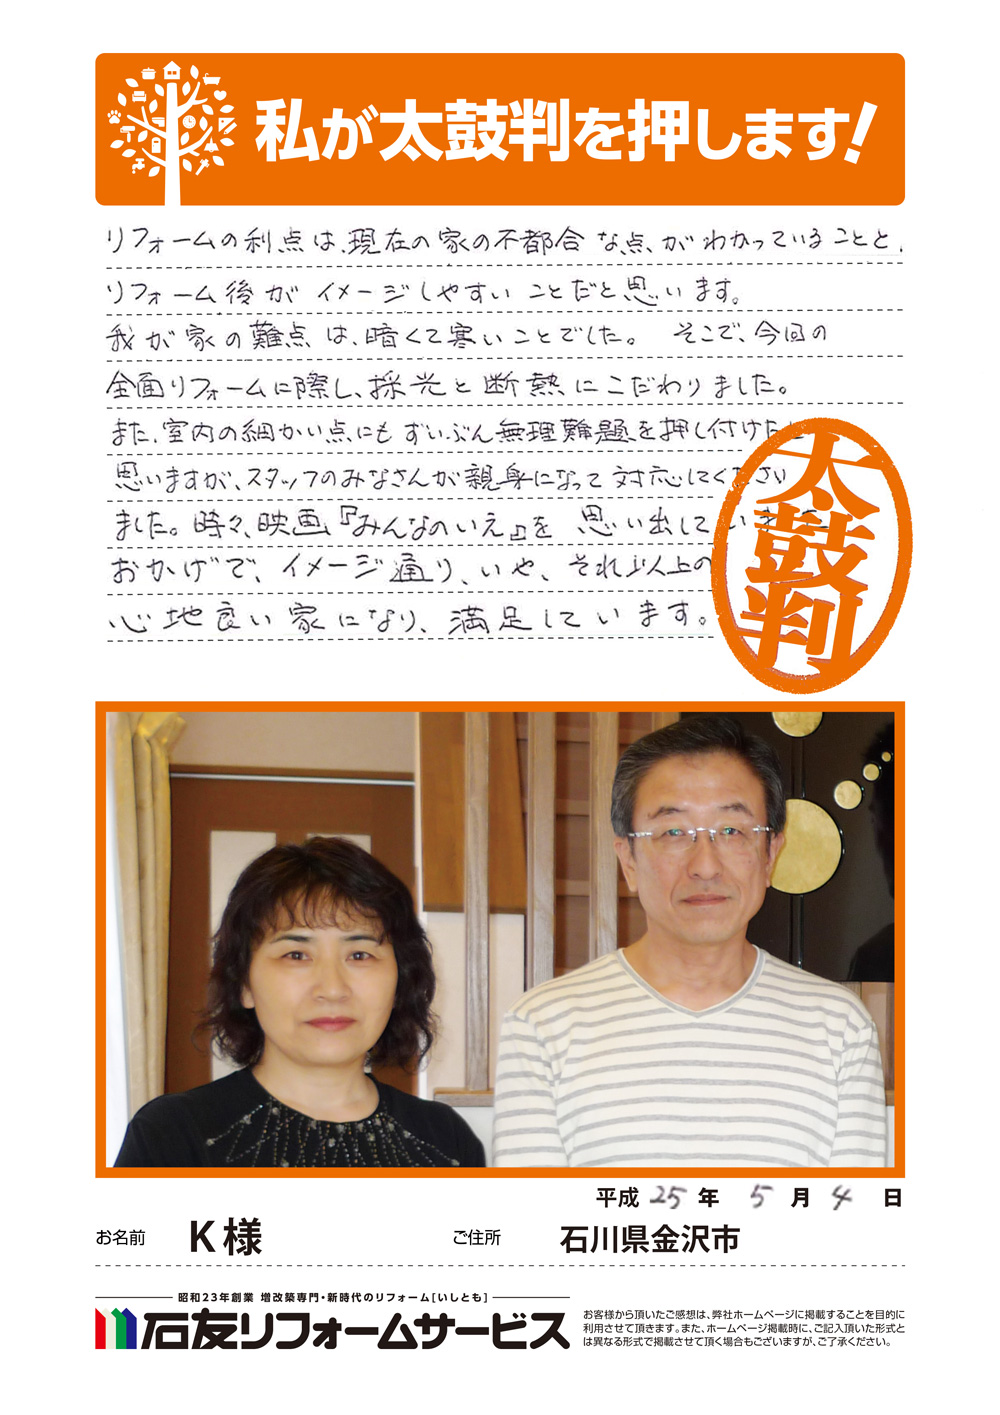 私が太鼓判を押します!
リフォームの利点は、現在の家の不都合な点、がわかっていることと、
リフォーム後がイメージしやすいことだと思います。
我が家の難点は、暗くて寒いことでした。 そこで、今回の
全面リフォームに際し、採光と断熱にこだわりました。
また、室内の細かい点にもずいぶん無理難題を押し付けたと
思いますが、スタッフのみなさんが親身になって対応してください
ました。時々、映画『みんなのいえ』を思い出していました。
おかげで、イメージ通り、いや、それ以上の
心地良い家になり、満足しています。
太鼓判
平成25年 5月4日
お名前 K様 ご住所 石川県金沢市
昭和23年創業 増改築専門・新時代のリフォーム[いしとも]
石友リフォームサービス
お客様から頂いたご感想は、弊社ホームページに掲載することを目的に
利用させて頂きます。また、ホームページ掲載時に、ご記入頂いた形式と
は異なる形式で掲載させて頂く場合もございますが、ご了承ください。